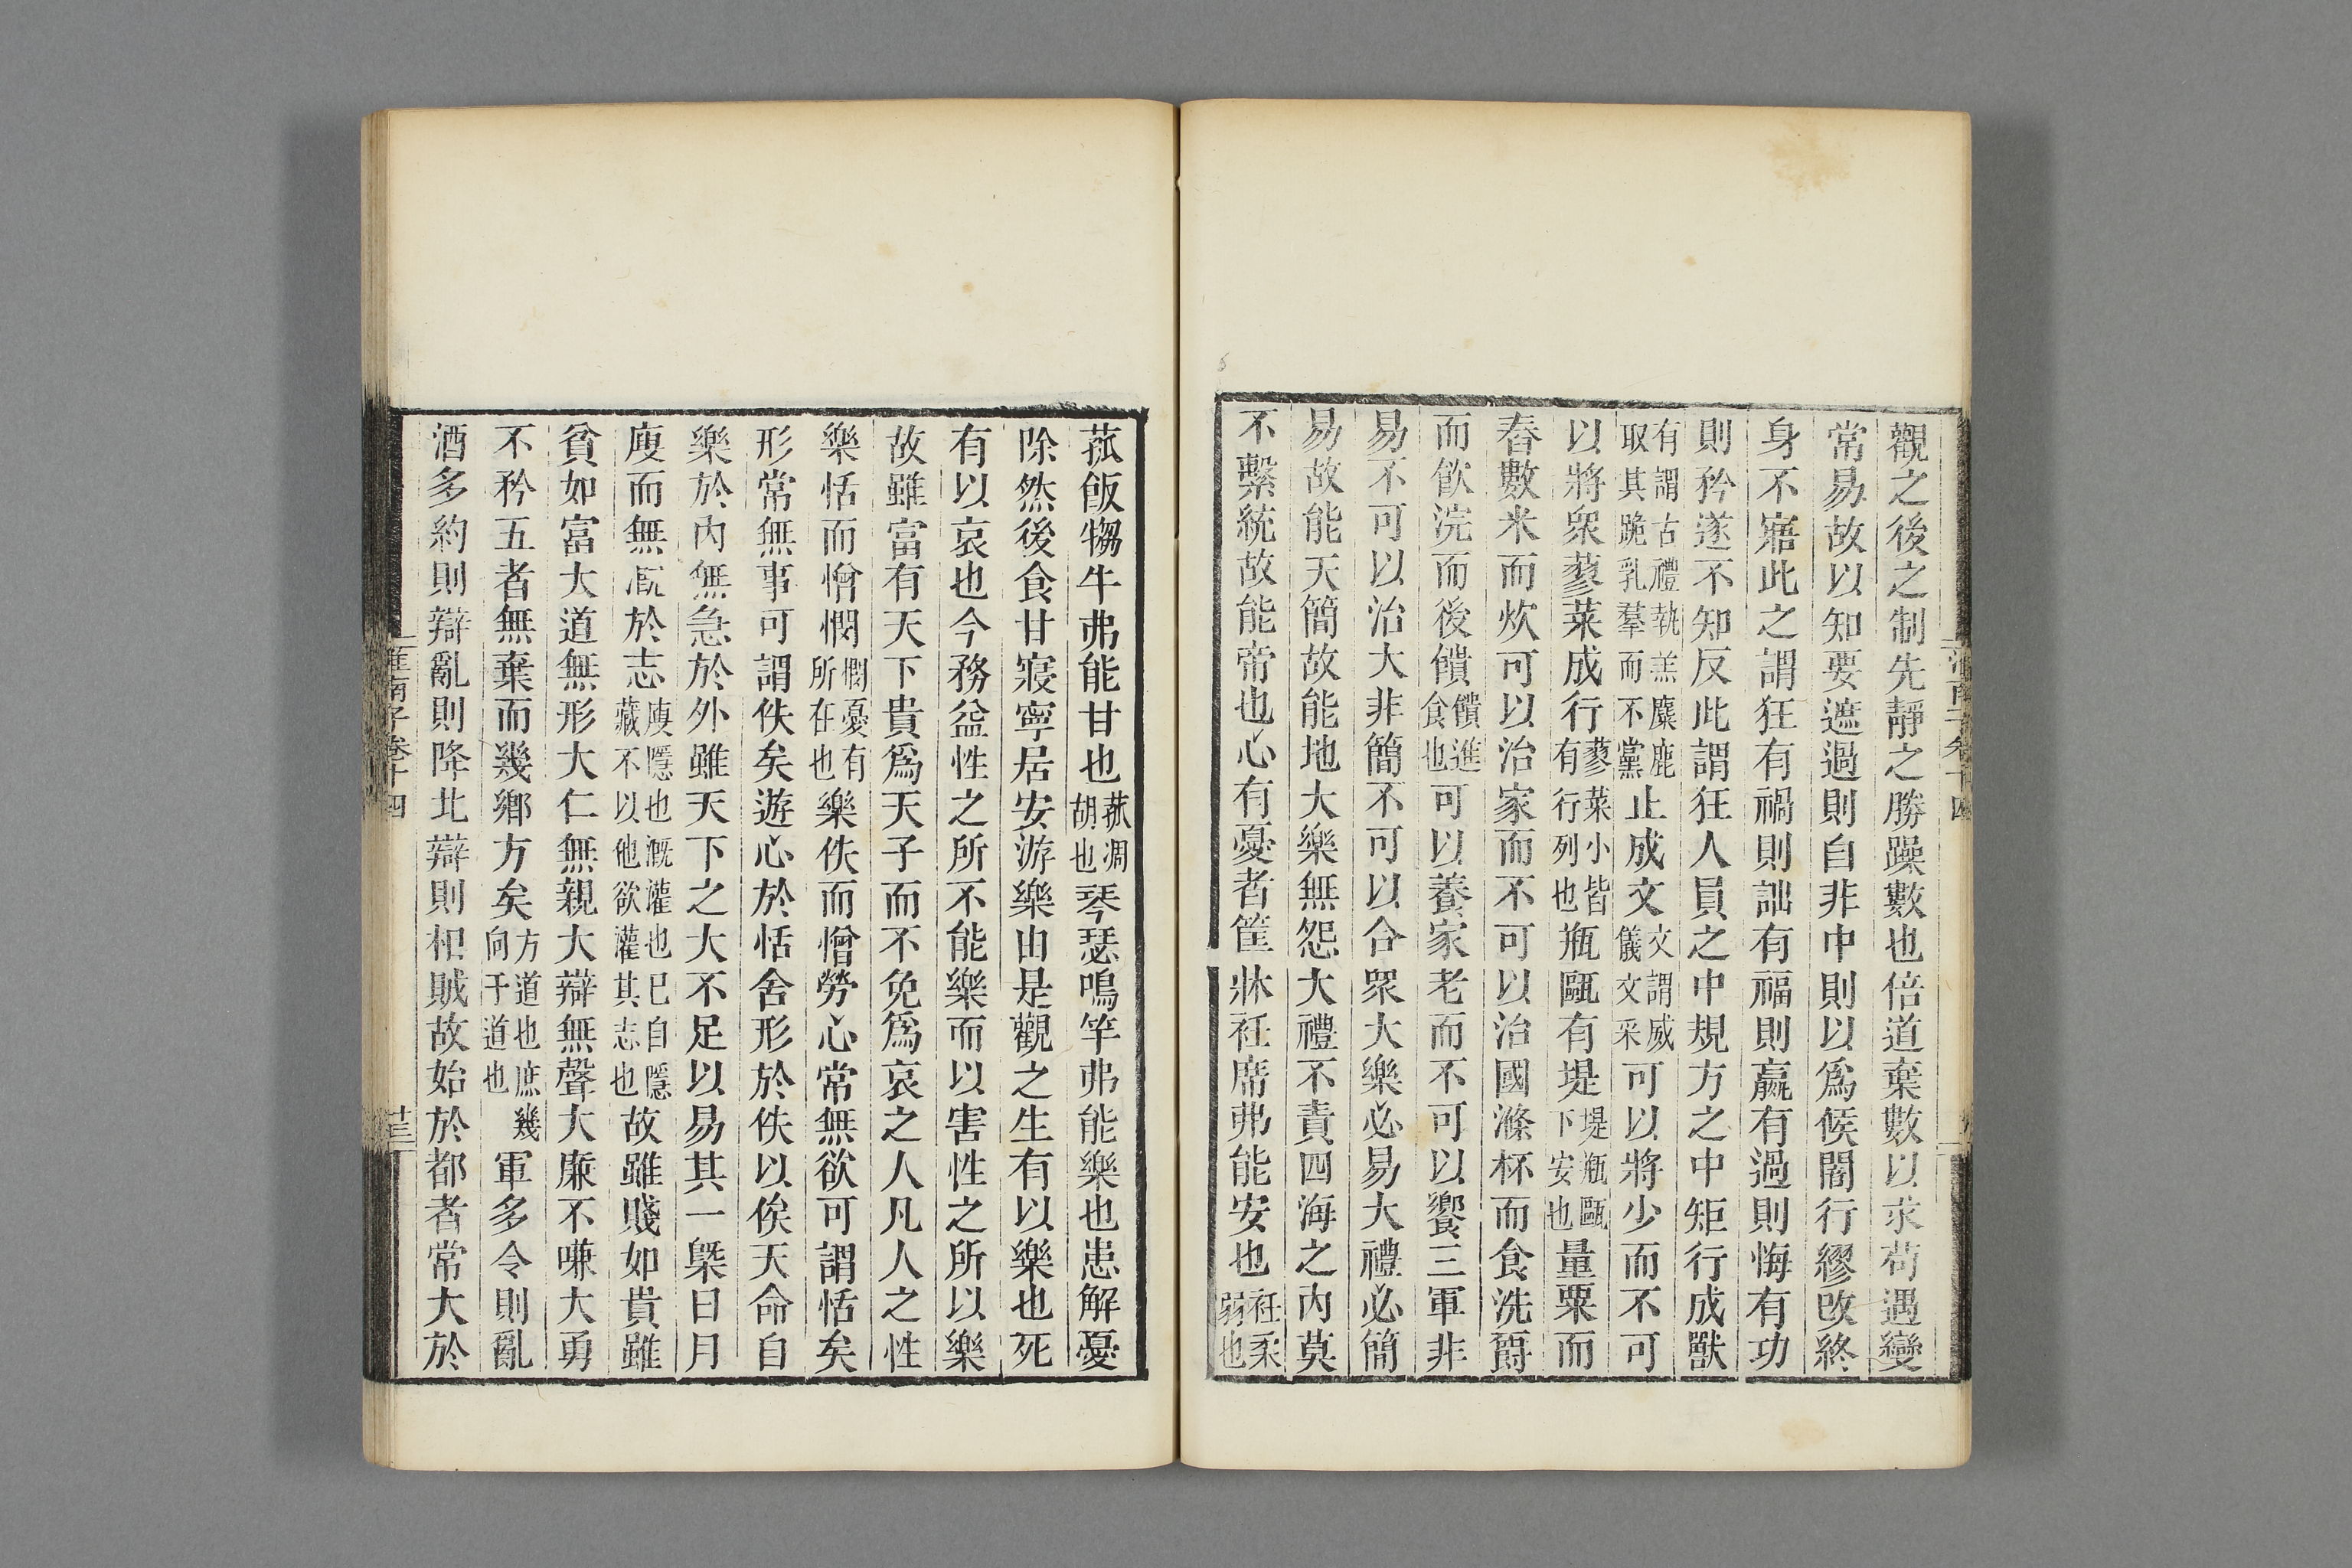 觀之後之制先靜之勝躁數也倍道棄數以求苟遇變
常易故以知要遮過則自非中則以爲候闇行繆改終
身不寤此之謂狂有禍則詘有福則羸有過則悔有功
則矜遂不知反此謂狂人員之中規方之中矩行成獸
有謂古禮執羔麋鹿取其跪乳羣而不黨止成文文謂威儀文采可以將少而不可
以將衆蓼菜成行蓼菜小皆有行列也瓶甌有堤堤瓶甌下安也量粟而
舂數米而炊可以治家而不可以治國滌杯而食洗爵
而飲浣而後饋饋進食也可以養家老而不可以饗三軍非
易不可以治大非簡不可以合眾大樂必易大禮必簡
易故能天簡故能地大樂無怨大禮不責四海之內莫
不繫統故能帝也心有憂者筐牀衽席弗能安也衽柔弱也
菰飯犓牛弗能甘也菰凋胡也琴瑟鳴竽弗能樂也患解憂
除然後食甘寢寧居安游樂由是觀之生有以樂也死
有以哀也今務益性之所不能樂而以害性之所以樂
故雖富有天下貴爲天子而不免爲哀之人凡人之性
樂恬而憎憫憫憂有所在也樂佚而憎勞心常無欲可謂恬矣
形常無事可謂佚矣遊心於恬舍形於佚以俟天命自
樂於內無急於外雖天下之大不足以易其一槩日月
廋而無溉於志廋隱也溉灌也已自隱藏不以他欲灌其志也故雖賤如貴雖
貧如富大道無形大仁無親大辯無聲大廉不嗛大勇
不矜五者無棄而幾鄉方矣方道也庶幾向于道也軍多令則亂
酒多約則辯亂則降北辯則相賊故始於都者常大於
淮南子卷十四
十三